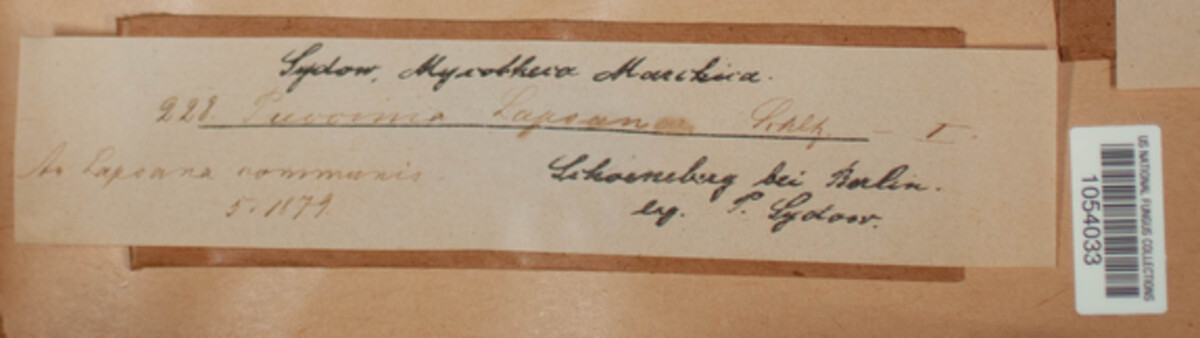 Sydow, Mycotheca Marchica.
228. Puccinia Lapsanae Schlz. – I.
An Lapsana communis
5. 1879.
Schoeneberg bei Berlin.
leg. P. Sydow.
US NATIONAL FUNGUS COLLECTIONS
1054033